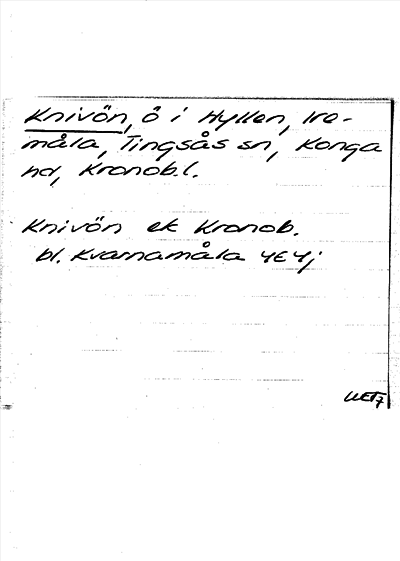 Knivön, ö i Hyllen, Ire-
måla, Tingsås sn, Konga
hd, Kronob.l.
Knivön ek Kronob.
bl. Kvarnamåla 4E4j